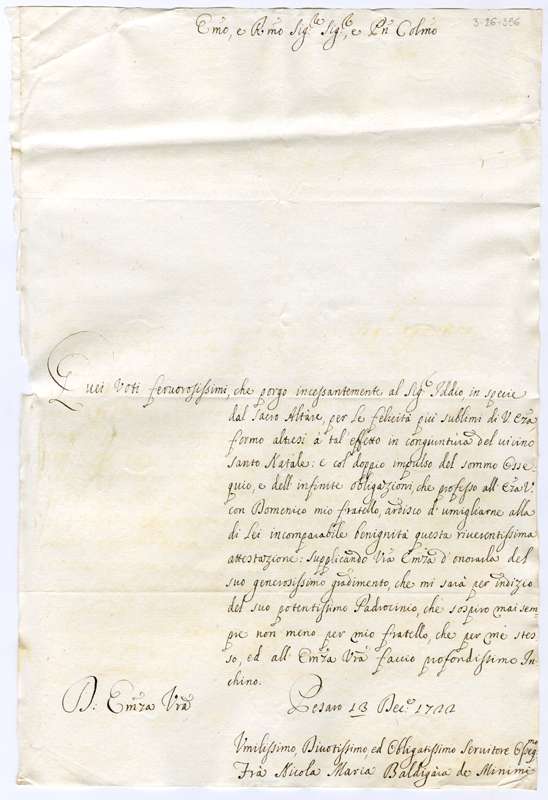 3-26-356
Emo, e Rmo Sig.re Sig.re, e Pn Colmo
Quei Voti fervorosissimi, che porgo incessantemente al Sig.r Iddio, in specie
dal Sacro Altare, per le felicità più sublimi di V. Emza
formo altresi à tal effetto in congiuntura del vicino
Santo Natale: e col doppio impulso del sommo Osse-
quio, e dell'infinite obligazioni, che professo all'Emza V.
con Domenico mio fratello, ardisco d'umigliarne alla
di Lei incomparabile benignità questa riverentissima
attestazione: supplicando Vra Emza d'onorarla del
suo generosissimo gradimento, che mi sarà per indizio
del suo potentissimo Padrocinio, che sospiro mai sem-
pre non meno per mio fratello, che per mè stes-
so, ed all'Emza Vra faccio profondissimo In-
chino.
D: Emza Vra
Pesaro 13 Dec.e 1722
Vmilissimo, Divotissimo, ed Obligatissimo Servitore Osseq.mo
Frà Nicola Maria Baldigàra de Minimi